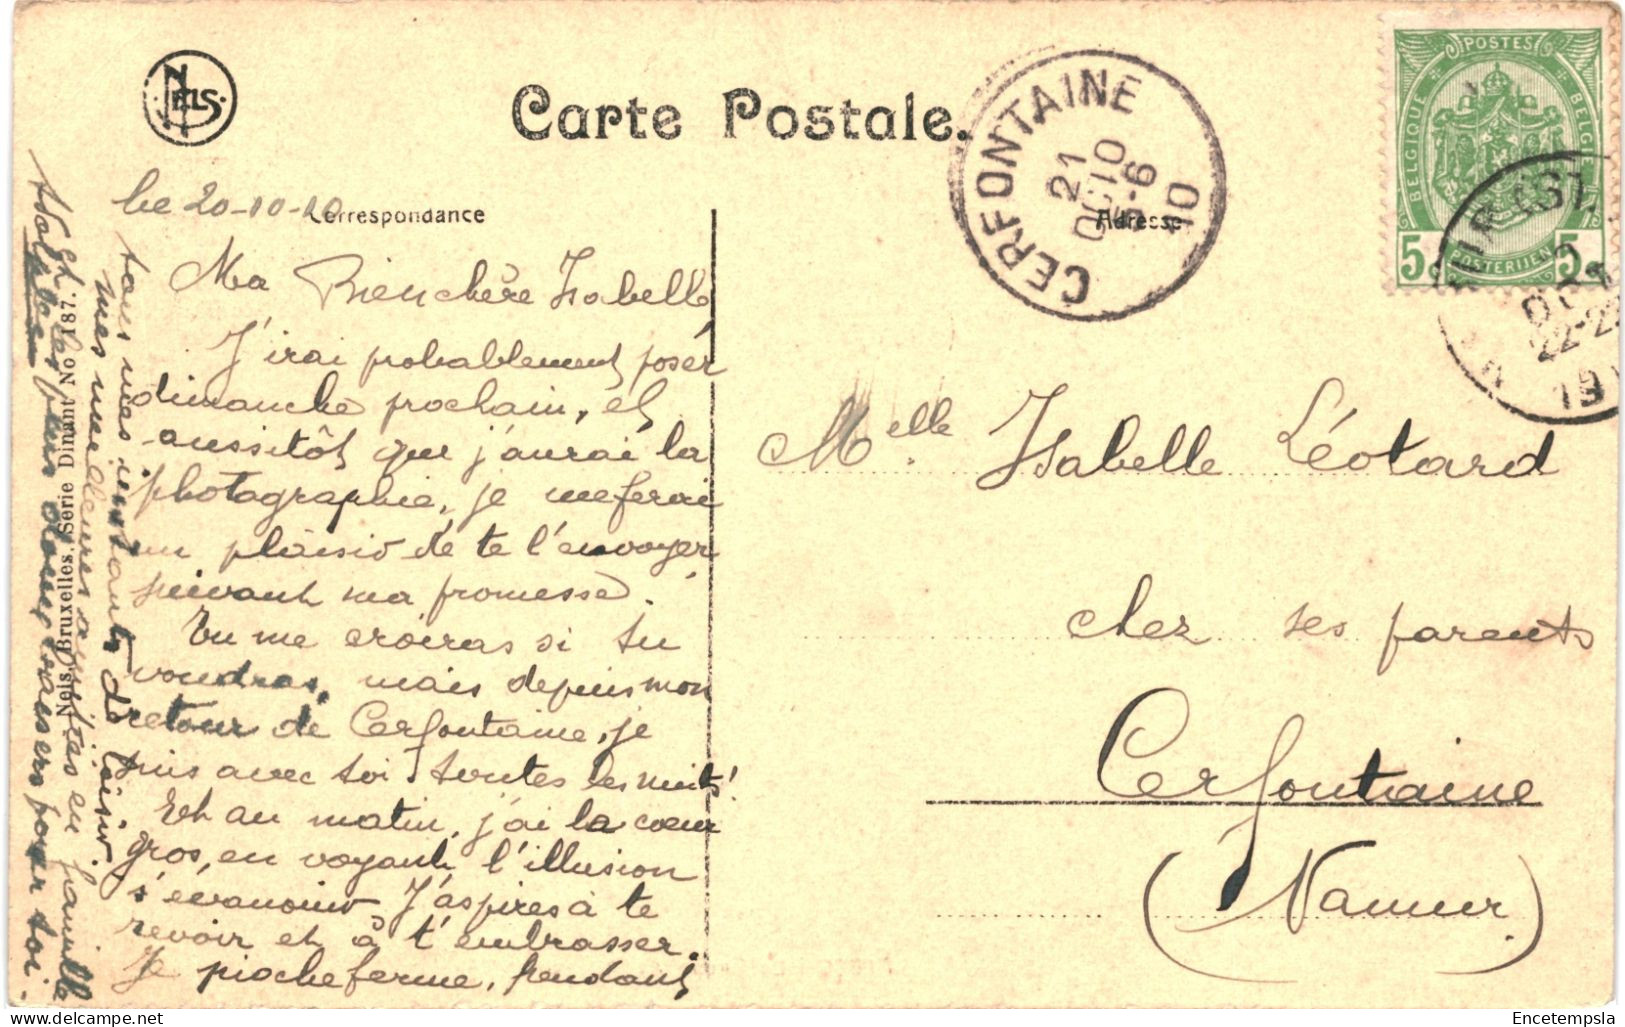 NELS
Carte Postale.
Correspondance
Adresse
POSTES
BELGIQUE
BELGIE
5 5
POSTERIJEN
CERFONTAINE
21
OCT 10
5-6
10
OCT
22-2
le 20-10-10
Ma Bien chère Isabelle
J'irai probablement poser
dimanche prochain, et
aussitôt que j'aurai la
photographie, je me ferai
un plaisir de te l'envoyer
suivant ma promesse.
Tu me croiras si tu
voudras, mais depuis mon
retour de Cerfontaine, je
suis avec toi toutes les nuits!
Et au matin, j'ai la cœur
gros, en voyant l'illusion
s'évanouir J'aspires à te
revoir et à t'embrasser.
Je pioche ferme, pendant
tous mes instants de loisir.
mes meilleures amitiés en famille
Et les plus doux baisers pour toi.
Nels, Bruxelles. Série Dinant No 187.
Melle. Isabelle Léotard
chez ses parents
Cerfontaine
(Namur.)
Encetempsla